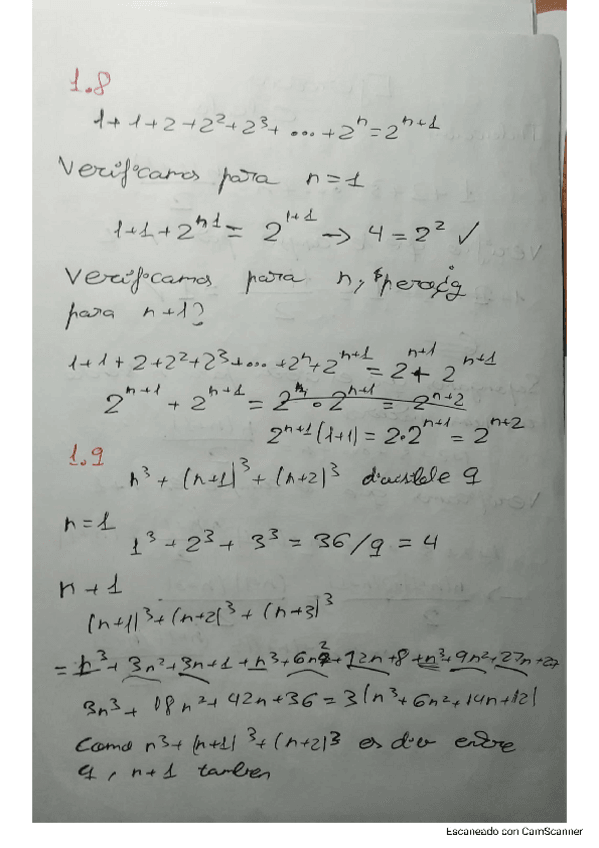 1.8
1+1+2+2²+2³+ ... +2ⁿ=2ⁿ⁺¹
Verificamos para n=1
= 2¹⁺¹ → 4=2² ✓
Verificamos para n,
para n+1?
1+1+2+2²+2³+...+2ⁿ+2ⁿ⁺¹ = 2ⁿ⁺¹+ 2ⁿ⁺¹
2ⁿ⁺¹ + 2ⁿ⁺¹ = · 2ⁿ⁺¹ = 2ⁿ⁺²
2ⁿ⁺¹(1+1)=2·2ⁿ⁺¹=2ⁿ⁺²
1.9
n³ + (n+1)³ + (n+2)³ 9
n=1
1³+2³+3³=36/9=4
n+1
(n+1)³+(n+2)³+(n+3)³
= n³+3n²+3n+1+n³+6n²+12n+8+n³+9n²+27n+27
3n³+18n²+42n+36=3(n³+6n²+14n+12)
Como n³+(n+1)³+(n+2)³ es div entre
9, n+1 tambien
Escaneado con CamScanner